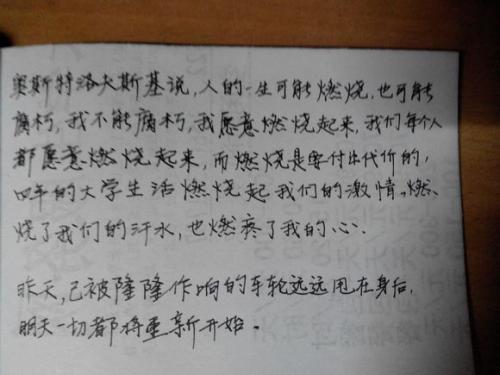 奥斯特洛夫斯基说，人的一生可能燃烧，也可能
腐朽，我不能腐朽，我愿意燃烧起来，我们每个人
都愿意燃烧起来，而燃烧是要付出代价的，
四年的大学生活燃烧起我们的激情。燃
烧了我们的汗水，也燃疼了我的心.
昨天，已被隆隆作响的车轮远远甩在身后，
明天一切都将重新开始。